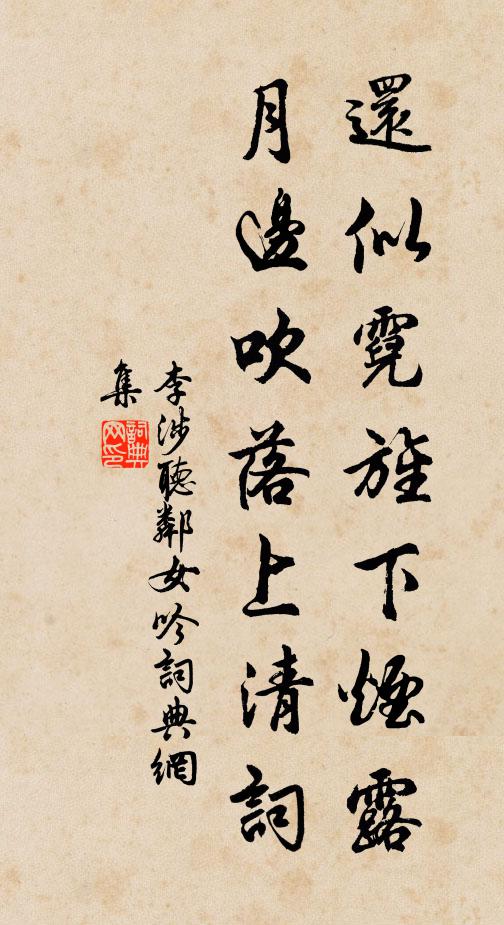 還似霓旌下煙露
月邊吹落上清詞
李涉聽鄰女吟詞典網
集
詞典
网印